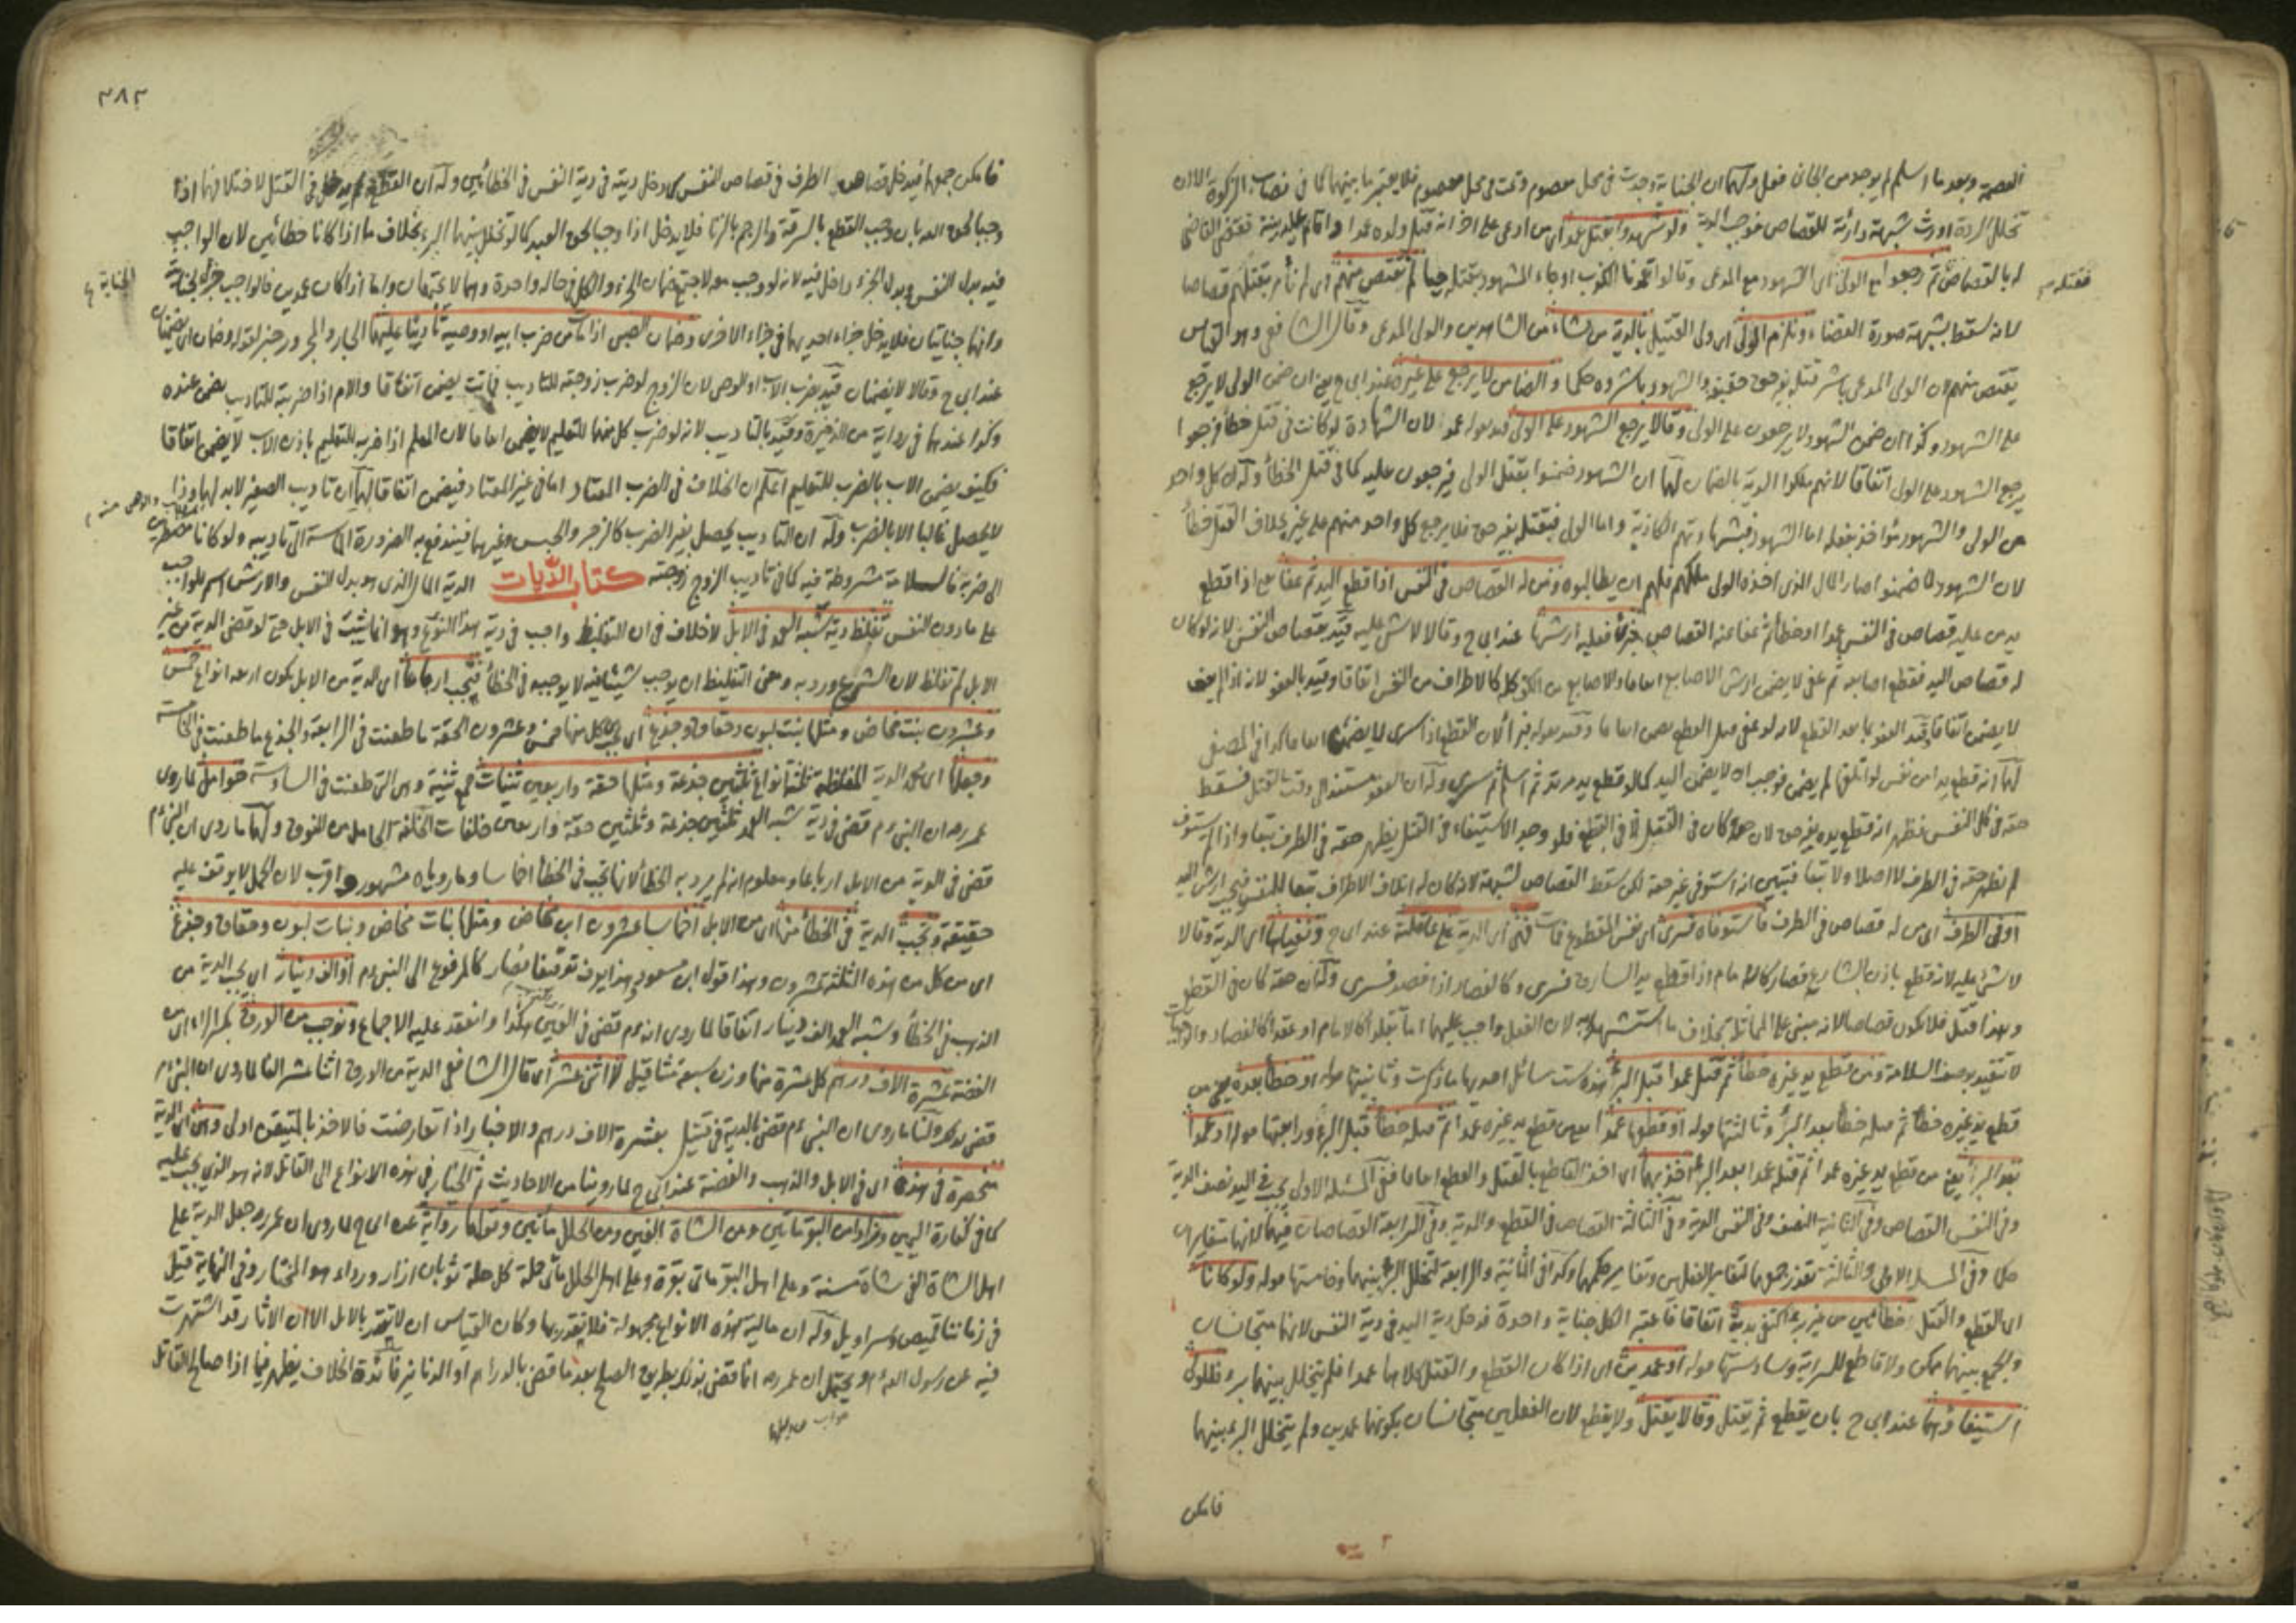 العصمة وبعد ما اسلم لم يوجد من الجاني فعل ولهما ان الجناية وجدت في محل معصوم وتمت في محل معصوم فلا يعتبر ما بينهما كما في نصاب الزكوة الا ان
تخلل الردة اورث شبهة دارئة للقصاص فوجب الدية ولو شهدوا بقتل عمد اي من ادعى على اخر انه قتل ولده عمدا واقام عليه بينة فقضى القاضي
له بالقصاص ثم رجعوا مع الولي اي الشهود مع المدعي وقالوا تعمدنا الكذب او جاء المشهود بقتله حيا لم نقتص منهم اي لم نأمر بقتلهم قصاصا
فقتله
لانه سقط بشبهة صورة القضاء ونلزم المولى اي ولي القتيل بالدية من شاء من الشاهدين والولي المدعي وقال الشافعي وهو القياس
يقتص منهم لان الولي المدعي باشر قتله بغير حق حقيقة والشهود باشروه حكما والضامن لا يرجع على غيره عند ابي ح يعني ان ضمن الولي لا يرجع
على الشهود وكذا ان ضمن الشهود لا يرجعون على الولي وقالا يرجع الشهود على الولي قيد بقوله عمد لان الشهادة لو كانت في قتل خطأ فرجعوا
يرجع الشهود على الولي اتفاقا لانهم ملكوا الدية بالضمان لهما ان الشهود ضمنوا بقتل الولي فيرجعون عليه كما في قتل الخطأ وله ان كل واحد
من الولي والشهود مؤاخذ بفعله اما الشهود فبشهادتهم الكاذبة واما الولي فبقتله بغير حق فلا يرجع كل واحد منهم على غيره بخلاف القتل خطأ
لان الشهود لما ضمنوا صار المال الذي اخذه الولي ملكهم فلهم ان يطالبوه ومن له القصاص في النفس اذا قطع اليد ثم عفا يعني اذا قطع
يد من عليه قصاص في النفس عمدا او خطأ ثم عفا عنه القصاص فبرأ فعليه ارشها عند ابي ح وقالا لا شيء عليه قيد بقصاص النفس لانه لو كان
له قصاص اليد فقطع اصابعه ثم عفى لا يضمن ارش الاصابع اتفاقا والاصابع من الكف كالاطراف من النفس اتفاقا وقيد بالعفو لانه اذا لم يعف
لا يضمن اتفاقا وقيد العفو بما بعد القطع لانه لو عفى قبل القطع يضمن اتفاقا وقيد بقوله فبرأ لان القطع اذا سرى لا يضمن اتفاقا كذا في المصفى
لهما انه قطع يدا من نفس لو اتلفها لم يضمن فوجب ان لا يضمن اليد كما لو قطع يد مرتد ثم اسلم ثم سرى وله ان العفو مستند الى وقت القتل فسقط
حقه في كل النفس فظهر انه قطع يده بغير حق لان حقه كان في القتل لا في القطع فلو وجد الاستيفاء في القتل يظهر حقه في الطرف تبعا واذا لم يستوف
لم يظهر حقه في الطرف لا اصلا ولا تبعا فتبين انه استوفى غير حقه لكن سقط القصاص لشبهة لانه كان له اتلاف الاطراف تبعا للنفس فيجب ارش اليد
او في الطرف اي من له قصاص في الطرف فاستوفاه فسرى اي نفس المقطوع فمات فهي اي الدية على عاقلته عند ابي ح ونفياها اي الدية وقالا
لا شيء عليه لانه قطع باذن الشارع فصار كالامام اذا قطع يد السارق فسرى وكالفصاد اذا فصد فسرى وله ان حقه كان في القطع
وهذا قتل فلا يكون قصاصا لانه مبني على المماثلة بخلاف ما استشهدا به لان الفعل واجب عليهما اما تقلدا كالامام او عقدا كالفصاد والواجب
لا تتقيد بوصف السلامة ومن قطع يد غيره خطأ ثم قتل عمدا قبل البرء هذه ست مسائل احديها ما ذكرت وثانيتها قوله او خطأ بعده يعني من
قطع يد غيره خطأ ثم قتله خطأ بعد البرء وثالثتها قوله او قطعها عمدا يعني قطع يد غيره عمدا ثم قتله خطأ قبل البرء ورابعتها قوله او عمدا
بعد البرء يعني من قطع يد غيره عمدا ثم قتله عمدا بعد البرء اخذ بهما اي اخذ القاطع بالقتل والقطع اتفاقا ففي المسئلة الاولى يجب في اليد نصف الدية
وفي النفس القصاص وفي الثانية النصف وفي النفس الدية وفي الثالثة القصاص في القطع والدية وفي الرابعة القصاصان فيهما لانهما متغايران
حكما وفي المسئلة الاولى والثالثة تعذر جمعهما لتغاير الفعلين وتغاير حكمهما وكذا في الثانية والرابعة لتخلل البرء بينهما وخامستها قوله ولو كانا
اي القطع والقتل خطأين من غير برء اكتفي بدية اتفاقا فاعتبر الكل جناية واحدة فدخل دية اليد في دية النفس لانهما متجانسان
والجمع بينهما ممكن ولا قاطع للسراية وسادستها قوله او عمدين اي اذا كان القطع والقتل كلاهما عمدا فلم يتخلل بينهما برء فللولي
استيفاؤهما عند ابي ح بان يقطع ثم يقتل وقالا يقتل ولا يقطع لان الفعلين متجانسان بكونهما عمدين ولم يتخلل البرء بينهما
فامكن
٣٨٣
فامكن جمعهما فيدخل قصاص الطرف في قصاص النفس كما دخل ديته في دية النفس في الخطائين وله ان القطع لم يدخل في القتل لاختلافهما اذا
وجبا لحق الله بان وجب القطع بالسرقة والرجم بالزنا فلا يدخل اذا وجبا لحق العبد كما لو تخلل بينهما البرء بخلاف ما اذا كانا خطائين لان الواجب
فيه بدل النفس وبدل الجزء داخل فيه لانه لو وجب معه لاجتمع ضمان الجزء والكل في حالة واحدة وهما لا يجتمعان واما اذا كان عمدين فالواجب جزاء الجناية
الجناية
وانهما جنايتان فلا يدخل جزاء احديهما في جزاء الاخرى وضمان الصبي اذا مات من ضرب ابيه او وصيه تأديبا عليهما الجار والمجرور خبر لقوله وضمان اي يضمنان
عند ابي ح وقالا لا يضمنان قيد بضرب الاب او الوصي لان الزوج لو ضرب زوجته للتأديب فماتت يضمن اتفاقا والام اذا ضربته للتأديب يضمن عنده
وكذا عندهما في رواية من الذخيرة وقيد بالتأديب لانه لو ضرب كل منهما للتعليم لا يضمن اتفاقا لان المعلم اذا ضربه للتعليم باذن الاب لا يضمن اتفاقا
فكيف يضمن الاب بالضرب للتعليم اعلم ان الخلاف في الضرب المعتاد اما في غير المعتاد فيضمن اتفاقا لهما ان تأديب الصغير لابد لهما وذا
لا يحصل غالبا الا بالضرب وله ان التأديب يحصل بغير الضرب كالزجر والحبس وغيرهما فيندفع به الضرورة الماسة الى تأديبه ولو كانا مضطرين
الى ضربه فالسلامة مشروطة فيه كما في تأديب الزوج زوجته كتاب الديات الدية المال الذي هو بدل النفس والارش اسم للواجب
على ما دون النفس تغلظ دية شبه العمد في الابل لا خلاف في ان التغليظ واجب في دية هذا النوع وهو انما يثبت في الابل حتى لو قضى الدية من غير
الابل لم تغلظ لان الشرع ورد به ومعنى التغليظ ان يوجب شيئا فيه لا يوجبه في الخطأ فتجب ارباعا اي الدية من الابل يكون اربعة انواع خمس
وعشرون بنت مخاض ومثلها بنت لبون وحقاق وجذع اي يجب كل منها خمس وعشرون الحقة ما طعنت في الرابعة والجذع ما طعنت في الخامسة
وجعلها اي محمد الدية المغلظة ثلثة انواع ثلثين جذعة ومثلها حقة واربعين ثنيات جمع ثنية وهي التي طعنت في السادسة حوامل لما روى
عمر رضه ان النبي ءم قضى في دية شبه العمد ثلثين جذعة وثلثين حقة واربعين خلفات الخلفة الحامل من النوق ولهما ما روى ان النبي ءم
قضى في الدية من الابل ارباعا ومعلوم انه لم يرد به الخطأ لانها تجب في الخطأ اخماسا وما روياه مشهور واقرب لان الحمل لا يوقف عليه
حقيقة وتجب الدية في الخطأ منها اي من الابل اخماسا عشرون ابن مخاض ومثلها بنات مخاض وبنات لبون وحقاق وجذع
اي من كل من هذه الثلثة عشرون وهذا قول ابن مسعود وهذا يعرف توقيفا فصار كالمرفوع الى النبي ءم او الف دينار اي يجب الدية من
الذهب في الخطأ وشبه العمد الف دينار اتفاقا لما روى انه ءم قضى في العينين هكذا وانعقد عليه الاجماع ونوجب من الورق بكسر الراء اي من
الفضة عشرة الاف درهم كل عشرة منها وزن سبعة مثاقيل لا اثني عشر اي قال الشافعي الدية من الورق اثنا عشر الفا لما روى ان النبي ءم
قضى بذلك ولنا ما روى ان النبي ءم قضى بالدية في قتيل بعشرة الاف درهم والاخبار اذا تعارضت فالاخذ بالمتيقن اولى وهي اي الدية
منحصرة في هذه اي في الابل والذهب والفضة عند ابي ح لما روينا من الاحاديث ثم الخيار في هذه الانواع الى القاتل لانه هو الذي يجب عليه
كما في كفارة اليمين وزادا من البقر مائتين ومن الشاة الفين ومن الحلل مائتين وقولهما رواية عن ابي ح لما روى ان عمر رضه جعل الدية على
اهل الشاة الفي شاة مسنة وعلى اهل البقر مائتي بقرة وعلى اهل الحلل مائتي حلة كل حلة ثوبان ازار ورداء هو المختار وفي النهاية قيل
في زماننا قميص وسراويل وله ان مالية هذه الانواع مجهولة فلا يقدر بها وكان القياس ان لا تقدر بالابل الا ان الاثار قد اشتهرت
فيه عن رسول الله ءم ويحتمل ان عمر رضه انما قضى بذلك بطريق الصلح بعد ما قضى بالدراهم او الدنانير فائدة الخلاف يظهر فيما اذا صالح القاتل